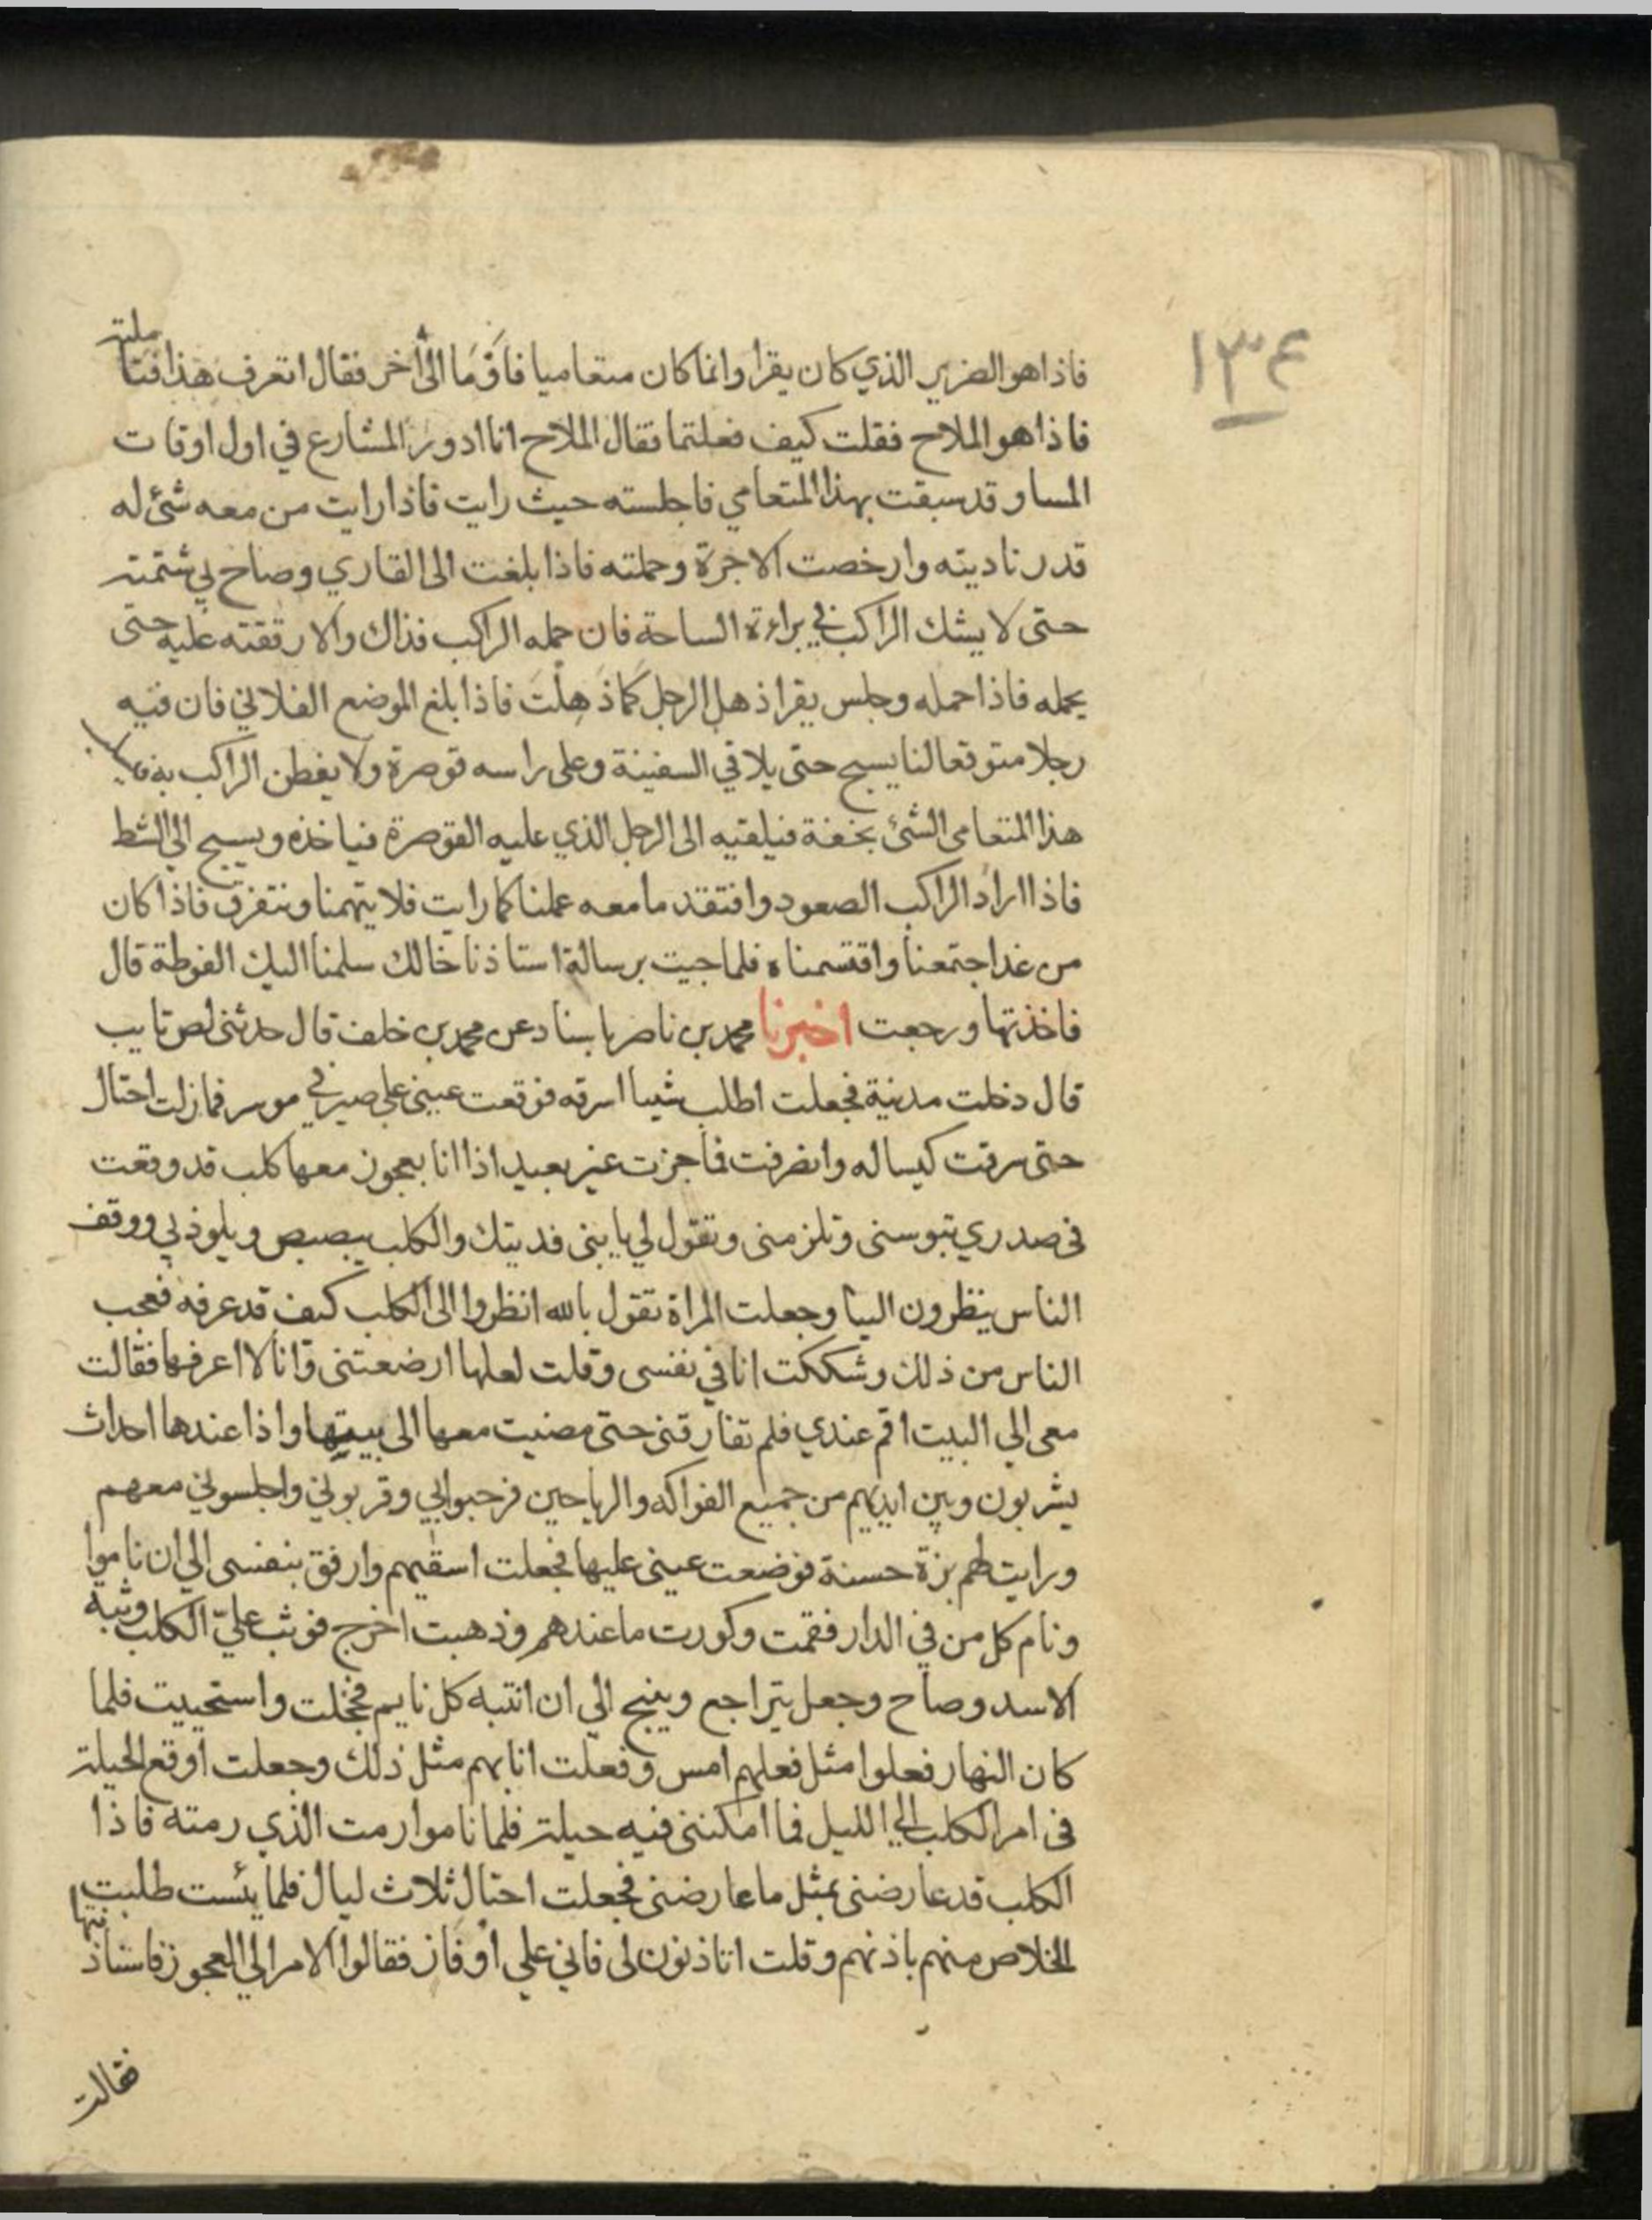 ١٣٤
فاذا هو الضرير الذي كان يقرا وانما كان متعاميا فاومَا الى آخر فقال اتعرف هذا فتاملته
فاذا هو الملاح فقلت كيف فعلتما فقال الملاح انا ادور المشارع في اول اوقات
المسا وقد سبقت بهذا المتعامي فاجلسته حيث رايت فاذا رايت من معه شئ له
قدر ناديته وارخصت الاجرة وحملته فاذا بلغت الى القاري وصاح بي شتمته
حتى لا يشك الراكب في براءة الساحة فان حمله الراكب فذاك والا رققته عليه حتى
يحمله فاذا حمله وجلس يقرا ذهل الرجل كما ذهلت فاذا بلغ الموضع الفلاني فان فيه
رجلا متوقعا لنا يسبح حتى يلاقي السفينة وعلى راسه قوصرة ولا يفطن الراكب به فيسلب
هذا المتعامى الشئ بخفة فيلقيه الى الرجل الذي عليه القوصرة فياخذه ويسبح الي الشط
فاذا اراد الراكب الصعود وافتقد ما معه عملنا كما رايت فلا يتهمنا ونتفرق فاذا كان
من غد اجتمعنا واقتسمناه فلما جيت برسالة استاذنا خالك سلمنا اليك الفوطة قال
فاخذتها ورجعت اخبرنا محمد بن ناصر باسناد عن محمد بن خلف قال حدثنى لص تايب
قال دخلت مدينة فجعلت اطلب شيا اسرقه فوقعت عينى على صيرفي موسر فما زلت احتال
حتى سرقت كيسا له وانصرفت فما جزت غير بعيد اذا انا بعجوز معها كلب قد وقعت
فى صدري تبوسنى وتلزمنى وتقول لي يا بنى فديتك والكلب يبصبص ويلوذ بي ووقف
الناس ينظرون الينا وجعلت المراة تقول بالله انظروا الى الكلب كيف قد عرفه فعجب
الناس من ذلك وشككت انا في نفسى وقلت لعلها ارضعتنى وانا لا اعرفها فقالت
معى الي البيت اقم عندي فلم تفارقنى حتى مضيت معها الى بيتها واذا عندها احداث
يشربون وبين ايديهم من جميع الفواكه والرياحين فرحبوا بي وقربوني واجلسوني معهم
ورايت لهم بزة حسنة فوضعت عينى عليها فجعلت اسقيهم وارفق بنفسى الي ان ناموا
ونام كل من في الدار فقمت وكورت ما عندهم وذهبت اخرج فوثب عليّ الكلب وثبة
الاسد وصاح وجعل يتراجع وينبح الي ان انتبه كل نايم فخجلت واستحييت فلما
كان النهار فعلوا مثل فعلهم امس وفعلت انا بهم مثل ذلك وجعلت اوقع الحيلة
فى امر الكلب الي الليل فما امكننى فيه حيلة فلما ناموا رمت الذي رمته فاذا
الكلب قد عارضنى بمثل ما عارضنى فجعلت احتال ثلاث ليال فلما يئست طلبت
الخلاص منهم باذنهم وقلت اتاذنون لى فاني علي اوفاز فقالوا الامر الي العجوز فاستاذنتها
فقالت